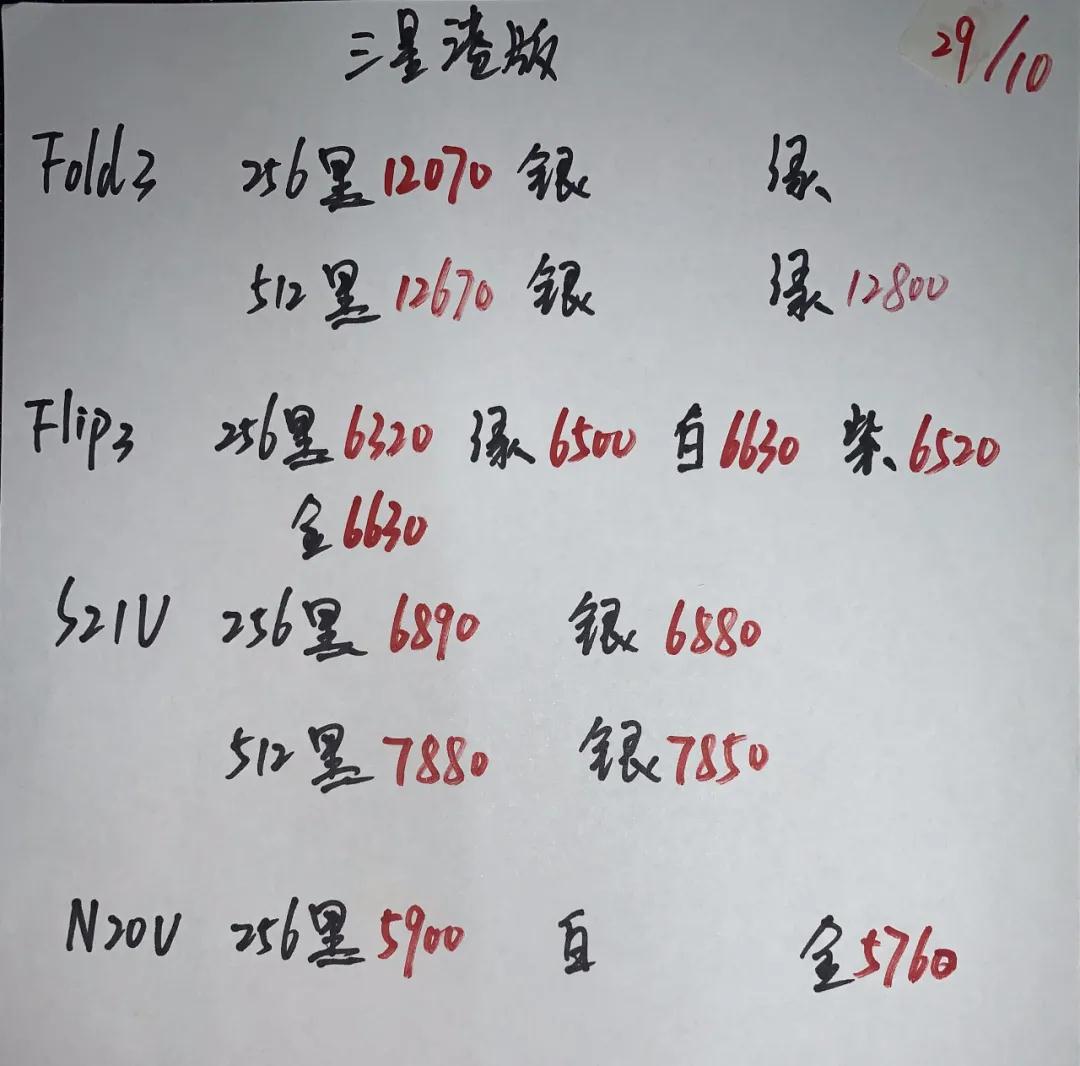 三星港版 29/10
Fold3 256黑12070 银 绿
512黑12670 银 绿12800
Flip3 256黑6320 绿6500 白6630 紫6520
金6630
S21U 256黑6890 银6880
512黑7880 银7850
N20U 256黑5900 白 金5760